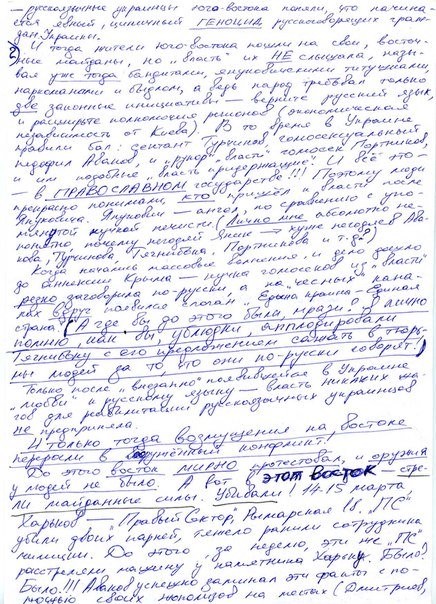 — русскоязычные украинцы юго-востока поняли, что начина-
ется явный, циничный ГЕНОЦИД русскоговорящих граж-
дан Украины.
И тогда жители юго-востока пошли на свои, восточ-
ные майданы, но „власть" их НЕ слышала, назы-
вая уже тогда бандитами, януковичскими титушками,
наркоманами и быдлом, а ведь народ требовал только
две законные инициативы — верните русский язык,
и расширьте полномочия регионов (экономическая
независимость от Киева). В то время в Украине
правили бал: сектант Турчинов, гомосексуальный
педофил Аваков, и „рупор власти" гомосек Портников,
и им подобные „власть придержащие". И всё это —
— в ПРАВОСЛАВНОМ государстве!!! Поэтому люди
прекрасно понимали, кто пришёл к власти после
Януковича. Янукович — ангел, по сравнению с упо-
мянутой кучкой нечисти (Лично мне абсолютно не-
понятно, почему негодяй Янык — хуже негодяев Ава-
кова, Турчинова, Тягнибока, Портникова и т.д.?)
Когда начались массовые волнения и дело дошло
до аннексии Крыма — кучка гомосеков из „власти"
резко заговорила по-русски, а на „честных" кана-
лах вдруг появился слоган „Едина краина — Единая
страна". (А где вы до этого были, мрази? Я лично
помню, как вы, ублюдки, апплодировали
Тягнибоку с его предложением сажать в тюрь-
мы людей за то что они по-русски говорят!)
Только после и внезапно появившейся в Украине
„любви" к русскому языку — власть никаких ша-
гов для реабилитации русскоязычных украинцев
не предприняла.
И только тогда возмущения на Востоке
переросли в вооружённый конфликт!
До этого восток мирно протестовал, и оружия
у людей не было. А вот в этот восток — стре-
ляли майданные силы. Убивали! 14-15 марта
Харьков — „Правый Сектор", Рымарская 18, „ПС"
убили двоих парней, тяжело ранили сотрудника
милиции. До этого, за неделю, эти же „ПС"
расстреляли машину у памятника Харьку. Было?
Было!!! Аваков успешно заминал эти факты с по-
мощью своих жополизов на постах (Дмитриев,